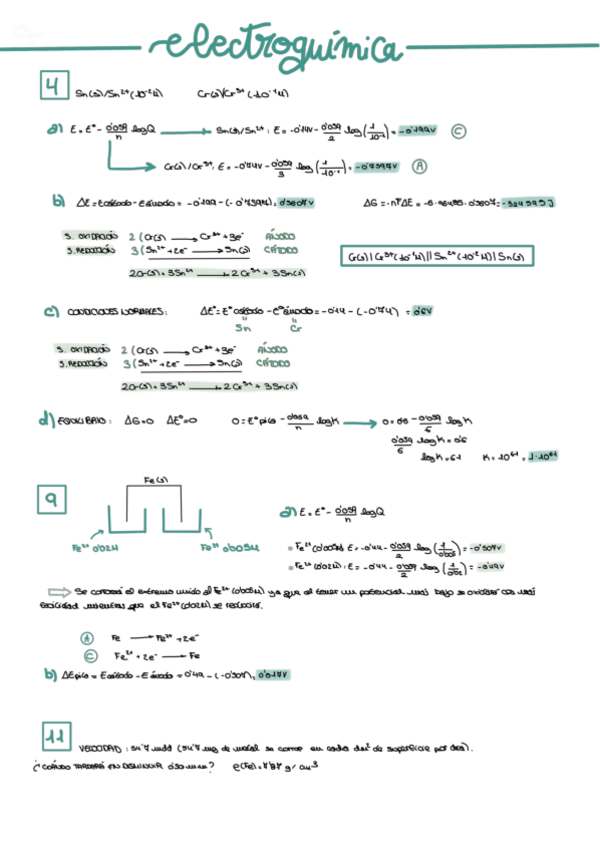 electroquímica
4 Sn(s)/Sn²⁺(10⁻²M) Cr(s)/Cr³⁺(10⁻¹M)
a) E = E° - 0'059/n log Q → Sn(s)/Sn²⁺: E = -0'14V - 0'059/2 log(1/10⁻²) = -0'199V C
→ Cr(s)/Cr³⁺, E = -0'74V - 0'059/3 log(1/10⁻¹) = -0'7597V A
b) ΔE = Ecátodo - Eánodo = -0'199 - (-0'7597) = 0'5607V ΔG = -nFΔE = -6·96485·0'5607 = -324595J
S. OXIDACIÓN 2 (Cr(s) → Cr³⁺ + 3e⁻ ÁNODO
S. REDUCCIÓN 3 (Sn²⁺ + 2e⁻ → Sn(s) CÁTODO
2Cr(s) + 3Sn²⁺ → 2Cr³⁺ + 3Sn(s)
Cr(s) | Cr³⁺(10⁻¹M) || Sn²⁺(10⁻²M) | Sn(s)
c) CONDICIONES NORMALES: ΔE° = E° cátodo - E° ánodo = -0'14 - (-0'74) = 0'6V
Sn Cr
S. OXIDACIÓN 2 (Cr(s) → Cr³⁺ + 3e⁻ ÁNODO
S. REDUCCIÓN 3 (Sn²⁺ + 2e⁻ → Sn(s) CÁTODO
2Cr(s) + 3Sn²⁺ → 2Cr³⁺ + 3Sn(s)
d) EQUILIBRIO: ΔG=0 ΔE°=0 0 = E° pila - 0'059/n log K → 0 = 0'6 - 0'059/6 log K
0'059/6 log K = 0'6
log K = 61 K = 10⁶¹ = 1·10⁶¹
9
Fe(s)
Fe²⁺ 0'02M Fe²⁺ 0'005M
a) E = E° - 0'059/n log Q
• Fe²⁺(0'005M) E = -0'44 - 0'059/2 log(1/0'005) = -0'507V
• Fe²⁺(0'02M): E = -0'44 - 0'059/2 log(1/0'02) = -0'49V
Se corroerá el extremo unido al Fe²⁺(0'005M) ya que al tener un potencial más bajo se oxidará con más
facilidad mientras que el Fe²⁺(0'02M) se reducirá.
A Fe → Fe²⁺ + 2e⁻
C Fe²⁺ + 2e⁻ → Fe
b) ΔE pila = Ecátodo - Eánodo = -0'49 - (-0'507) = 0'017V
11
VELOCIDAD: 54'7 mdd (54'7 mg de metal se corroe en cada dm² de superficie por día).
¿CUÁNTO TARDARÁ EN DISMINUIR 0'50 mm? ρ(Fe) = 7'87 g/cm³